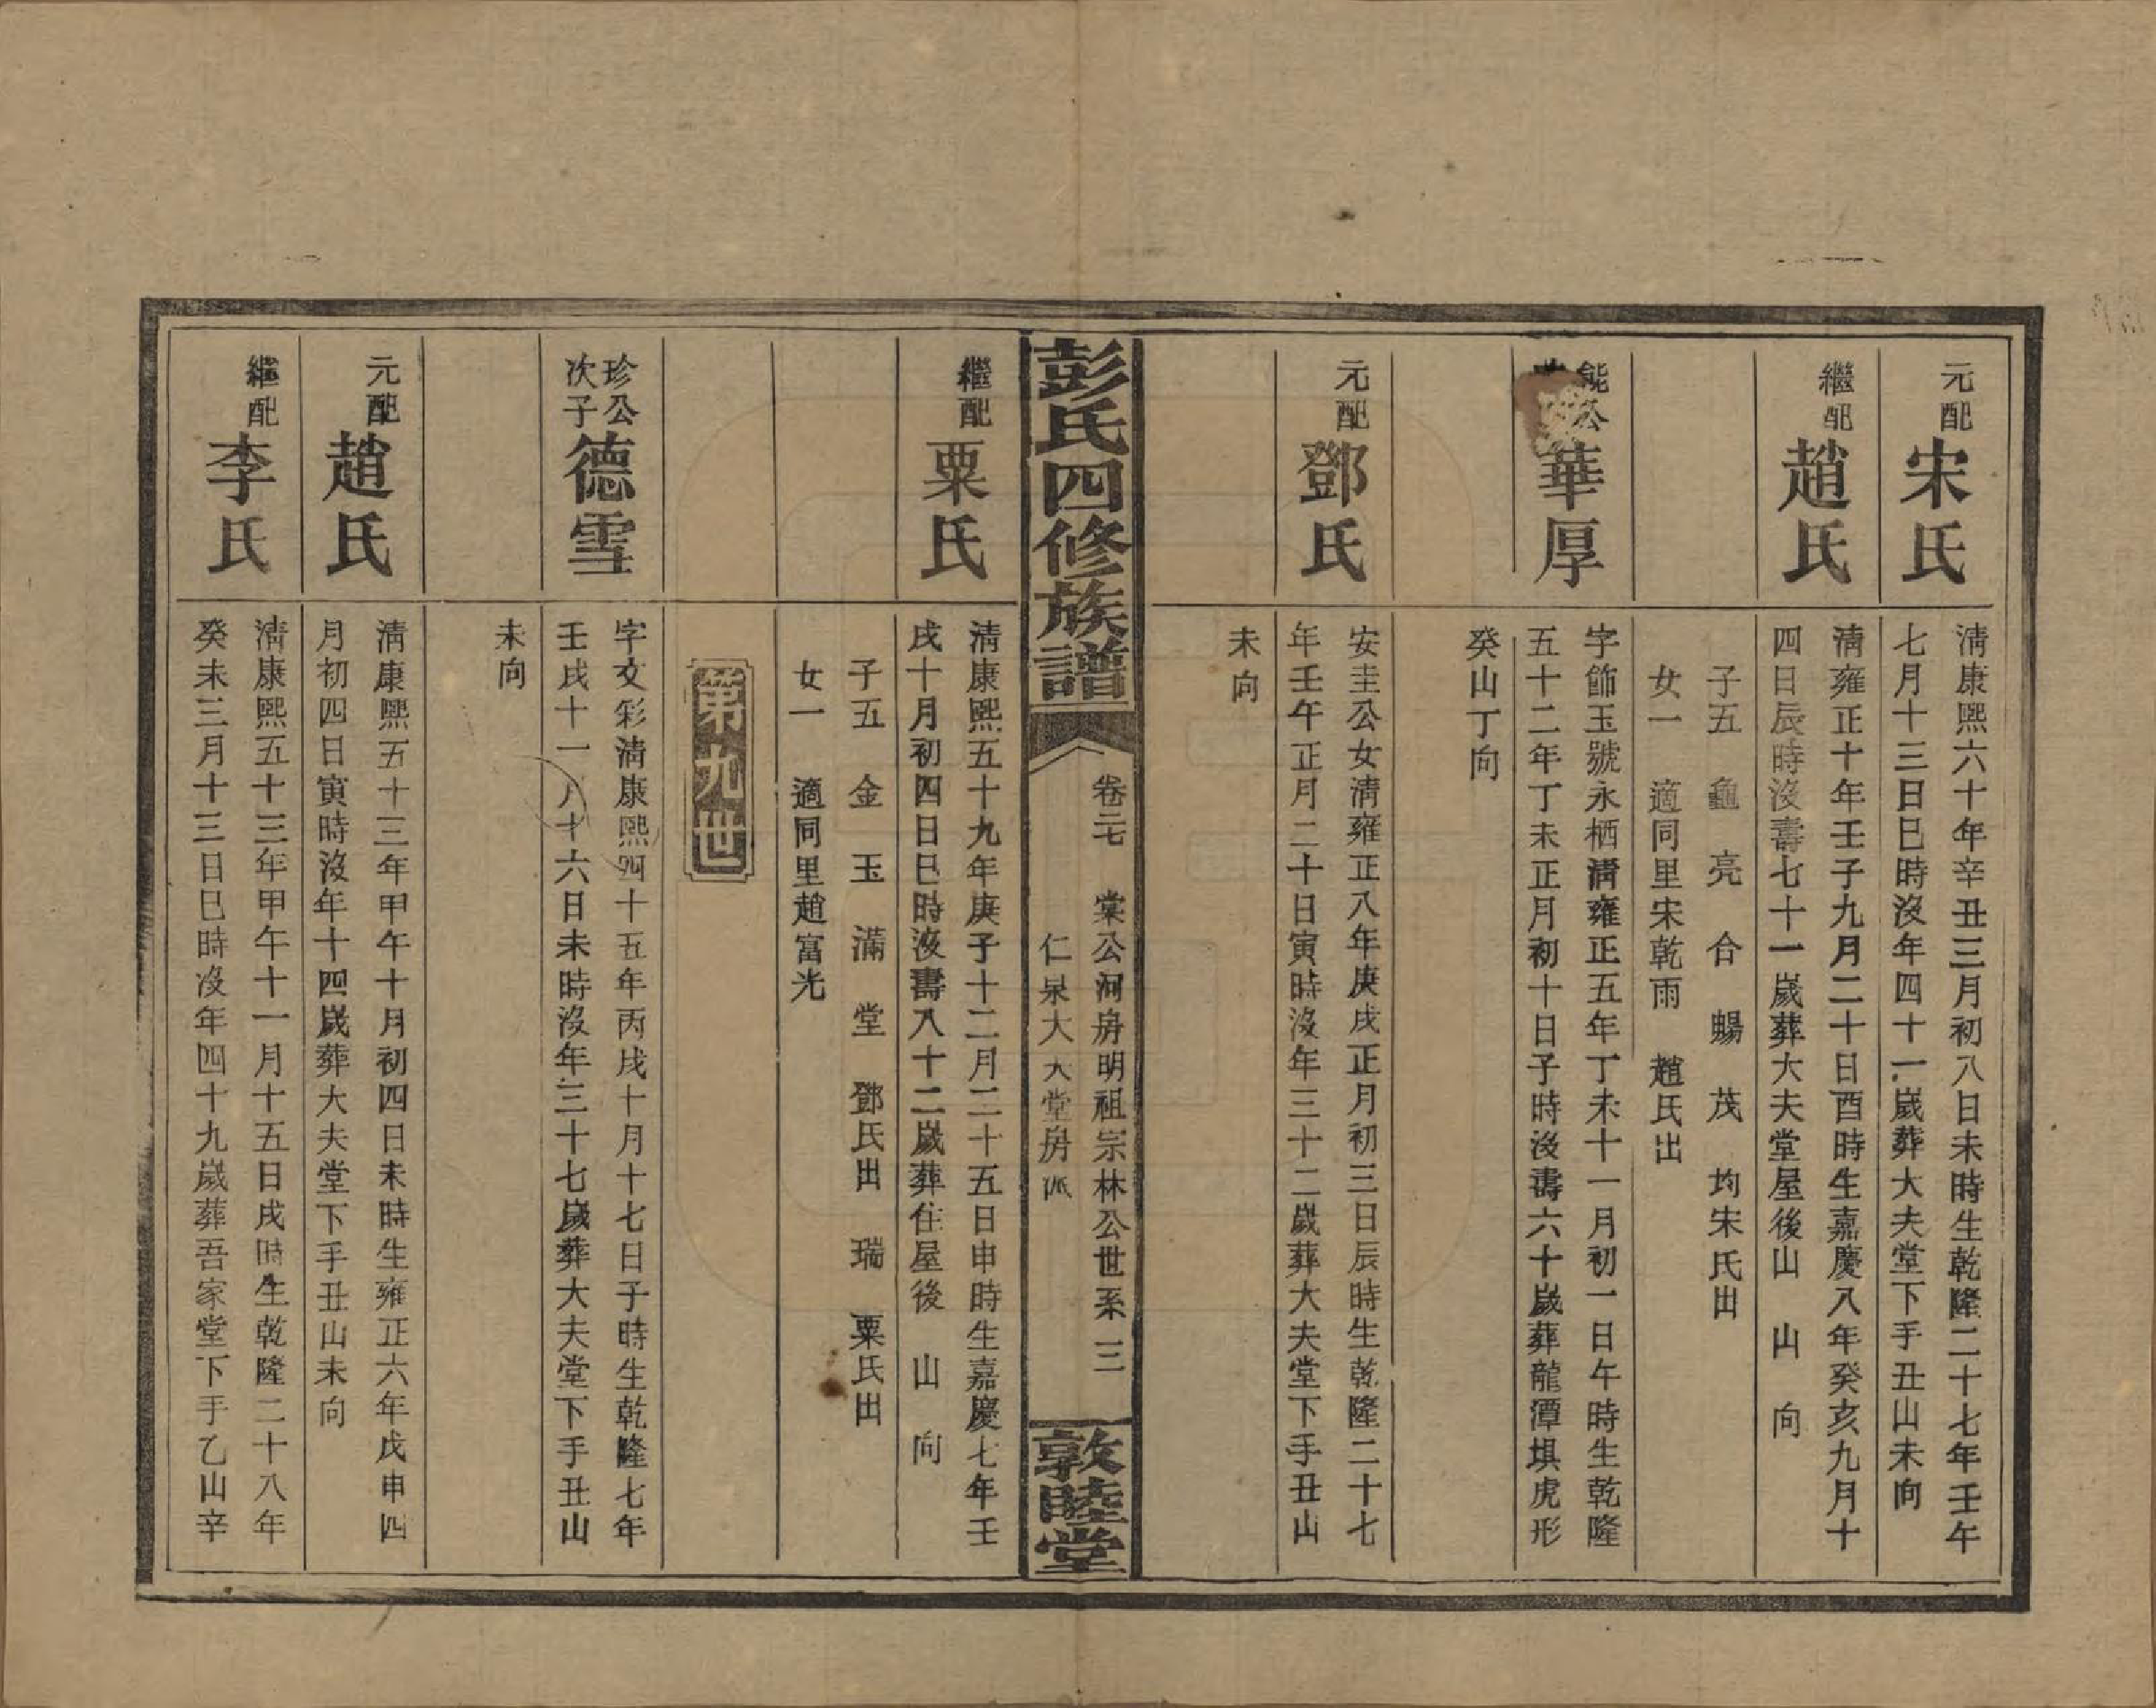 元配
宋氏
清康熙六十年辛丑三月初八日未時生乾隆二十七年壬午
七月十三日巳時沒年四十一歲葬大夫堂下手丑山未向
繼配
趙氏
清雍正十年壬子九月二十日酉時生嘉慶八年癸亥九月十
四日辰時沒壽七十一歲葬大夫堂屋後山 山 向
子五 龜 亮 合 賜 茂 均宋氏出
女一 適同里宋乾雨 趙氏出
能公
華厚
字飾玉號永栖清雍正五年丁未十一月初一日午時生乾隆
五十二年丁未正月初十日子時沒壽六十歲葬龍潭埧虎形
癸山丁向
元配
鄧氏
安圭公女清雍正八年庚戌正月初三日辰時生乾隆二十七
年壬午正月二十日寅時沒年三十二歲葬大夫堂下手丑山
未向
彭氏四修族譜
卷二七 棠公河房明祖宗林公世系 三
仁泉大 大堂房派
敦睦堂
繼配
粟氏
清康熙五十九年庚子十二月二十五日申時生嘉慶七年壬
戌十月初四日巳時沒壽八十二歲葬住屋後 山 向
子五 金 玉 滿 堂 鄧氏出 瑞 粟氏出
女一 適同里趙富光
第九世
珍公
次子
德雪
字文彩清康熙四十五年丙戌十月十七日子時生乾隆七年
壬戌十一月十六日未時沒年三十七歲葬大夫堂下手丑山
未向
元配
趙氏
清康熙五十三年甲午十月初四日未時生雍正六年戊申四
月初四日寅時沒年十四歲葬大夫堂下手丑山未向
繼配
李氏
清康熙五十三年甲午十一月十五日戌時生乾隆二十八年
癸未三月十三日巳時沒年四十九歲葬吾家堂下手乙山辛